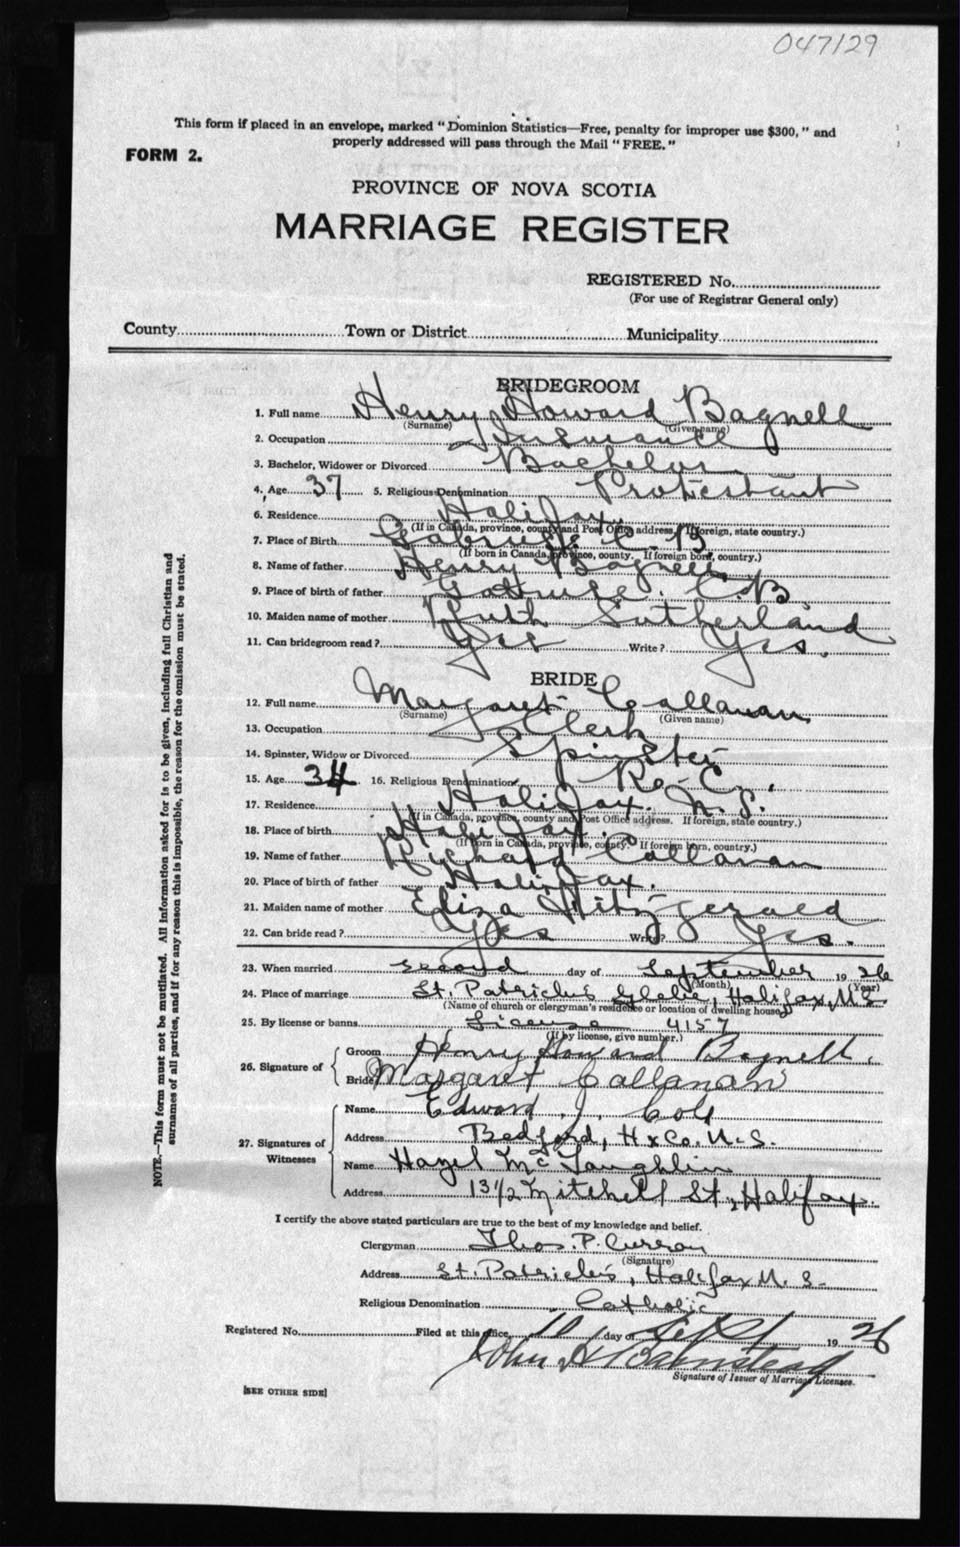 047129
This form if placed in an envelope, marked "Dominion Statistics—Free, penalty for improper use $300," and
properly addressed will pass through the Mail "FREE."
FORM 2.
PROVINCE OF NOVA SCOTIA
MARRIAGE REGISTER
REGISTERED No.
(For use of Registrar General only)
County Town or District Municipality
BRIDEGROOM
1. Full name Henry Howard Bagnell
(Surname) (Given name)
2. Occupation Insurance
3. Bachelor, Widower or Divorced Bachelor
4. Age 37 5. Religious Denomination Protestant
6. Residence Halifax
(If in Canada, province, county and Post Office address. If foreign, state country.)
7. Place of Birth C. B.
(If born in Canada, province, county. If foreign born, country.)
8. Name of father Henry Bagnell
9. Place of birth of father C.B.
10. Maiden name of mother Ruth Sutherland
11. Can bridegroom read? Yes Write? Yes.
BRIDE
12. Full name Margaret Callanan
(Surname) (Given name)
13. Occupation Clerk
14. Spinster, Widow or Divorced Spinster
15. Age 34 16. Religious Denomination R. C.
17. Residence Halifax. N.S.
(If in Canada, province, county and Post Office address. If foreign, state country.)
18. Place of birth Halifax.
(If born in Canada, province, county. If foreign born, country.)
19. Name of father Richard Callanan
20. Place of birth of father Halifax.
21. Maiden name of mother Eliza Fitzgerald
22. Can bride read? Yes Write? Yes.
23. When married second day of September 1926
(Month) (Year)
24. Place of marriage St. Patrick's Glebe, Halifax, N.S.
(Name of church or clergyman's residence or location of dwelling house.)
25. By license or banns License 4157
(If by license, give number.)
26. Signature of
Groom Henry Howard Bagnell.
Bride Margaret Callanan
27. Signatures of Witnesses
Name Edward J.
Address Bedford, Hx Co. N.S.
Name Hazel McLaughlin
Address 13½ Mitchell St., Halifax.
I certify the above stated particulars are true to the best of my knowledge and belief.
Clergyman Thos. P. Curran
(Signature)
Address St. Patrick's, Halifax N. S.
Religious Denomination Catholic
Registered No. Filed at this office, 10 day of Sept 1926
John
Signature of Issuer of Marriage Licenses.
[SEE OTHER SIDE]
NOTE.—This form must not be mutilated. All information asked for is to be given, including full Christian and
surnames of all parties, and if for any reason this is impossible, the reason for the omission must be stated.